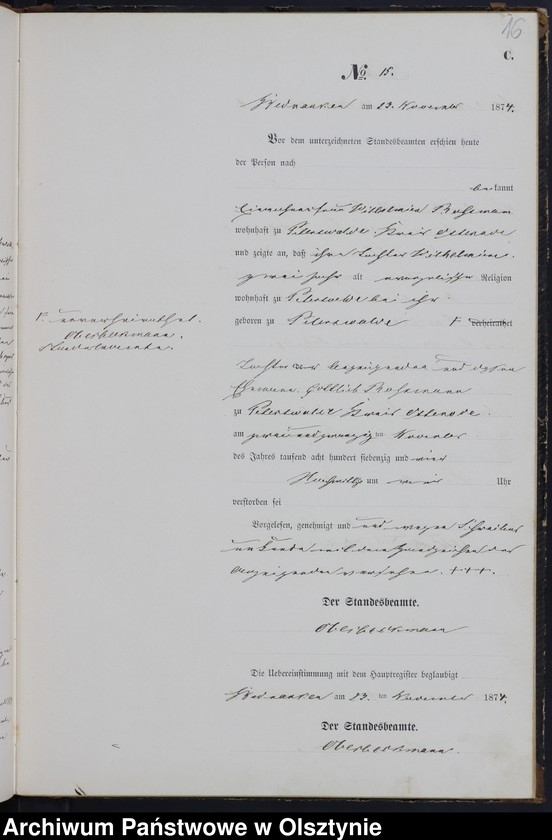 16
C.
No. 15.
am 23. November 1874.
Vor dem unterzeichneten Standesbeamten erschien heute
der Person nach
bekannt
Wilhelmine
wohnhaft zu Peterswalde Kreis Osterode
und zeigte an, daß ihre Tochter Wilhelmine
zwei Jahr alt evangelischer Religion
wohnhaft zu Peterswalde bei ihr
geboren zu Peterswalde verheirathet
unverheirathet.
Standesbeamte.
Tochter der Anzeigenden und dessen
Ehemann Gottlieb
zu Peterswalde Kreis Osterode
am zweiundzwanzig ten November
des Jahres tausend acht hundert siebenzig und vier
Nachmittags um Uhr
verstorben sei
Vorgelesen, genehmigt und und wegen Schreibens
unkunde mit dem Handzeichen der
Anzeigenden versehen. +++.
Der Standesbeamte.
Die Uebereinstimmung mit dem Hauptregister beglaubigt
am 23. ten November 1874.
Der Standesbeamte.
Archiwum Państwowe w Olsztynie